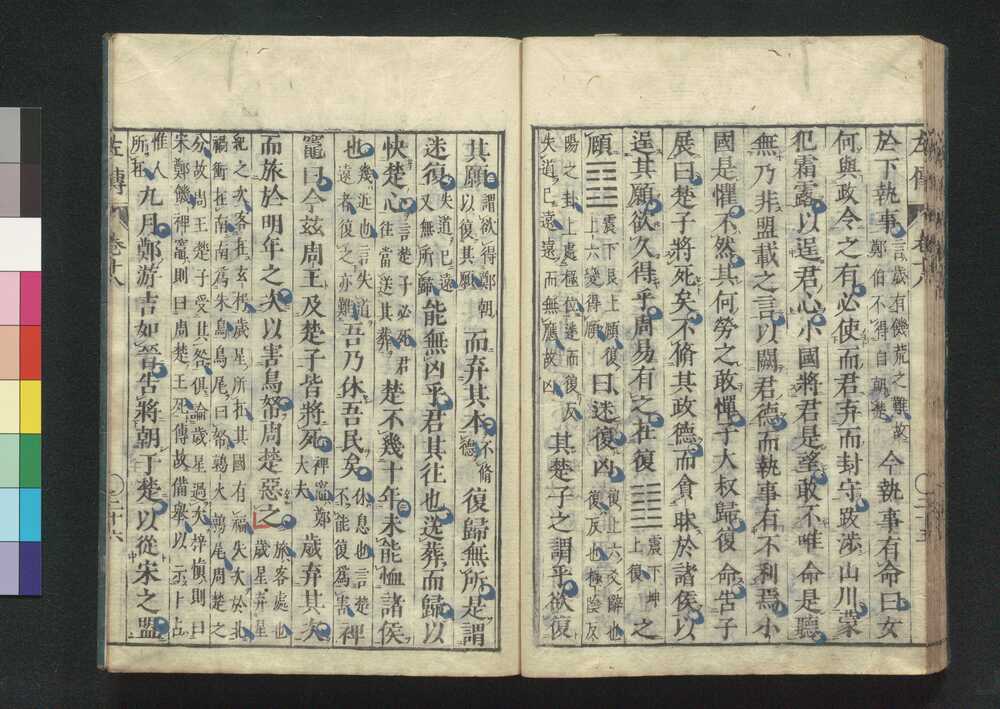 於下執事言歲有饑荒之難故鄭伯不得自朝楚今執事有命曰女
何與政令之有必使而君弃而封守跋涉山川蒙
犯霜露以逞君心小國將君是望敢不唯命是聽
無乃非盟載之言以闕君德而執事有不利焉小
國是懼不然其何勞之敢憚子大叔歸復命告子
展曰楚子將死矣不脩其政德而貪昧於諸侯以
逞其願欲久得乎周易有之在復䷗震下坤上復之
頤䷚震下艮上頤復上六變得頤曰迷復凶復上六爻辭也復反也極陰反
陽之卦上處極位迷而復反失道已遠遠而無應故凶其楚子之謂乎欲復
其願謂欲得鄭朝以復其願而弃其本不脩德復歸無所是謂
迷復失道已遠又無所歸能無凶乎君其往也送葬而歸以
快楚心言楚子必死君往當送其葬楚不幾十年未能恤諸侯
也幾近也言失道遠者復之亦難吾乃休吾民矣休息也言楚不能復爲害裨
竈曰今茲周王及楚子皆將死裨竈鄭大夫歲弃其次
而旅於明年之次以害鳥帑周楚惡之旅客處也歲星弃星
紀之次客在玄枵歲星所在其國有福失次於北禍衝在南南爲朱鳥鳥尾曰帑鶉火鶉尾周楚之
分故周王楚子受其咎俱論歲星過次梓慎則曰宋鄭饑裨竈則曰周楚王死傳故備舉以示卜占
惟人所在九月鄭游吉如晉告將朝于楚以從宋之盟
左傳
卷十八
二十五
左傳
卷十八
二十六